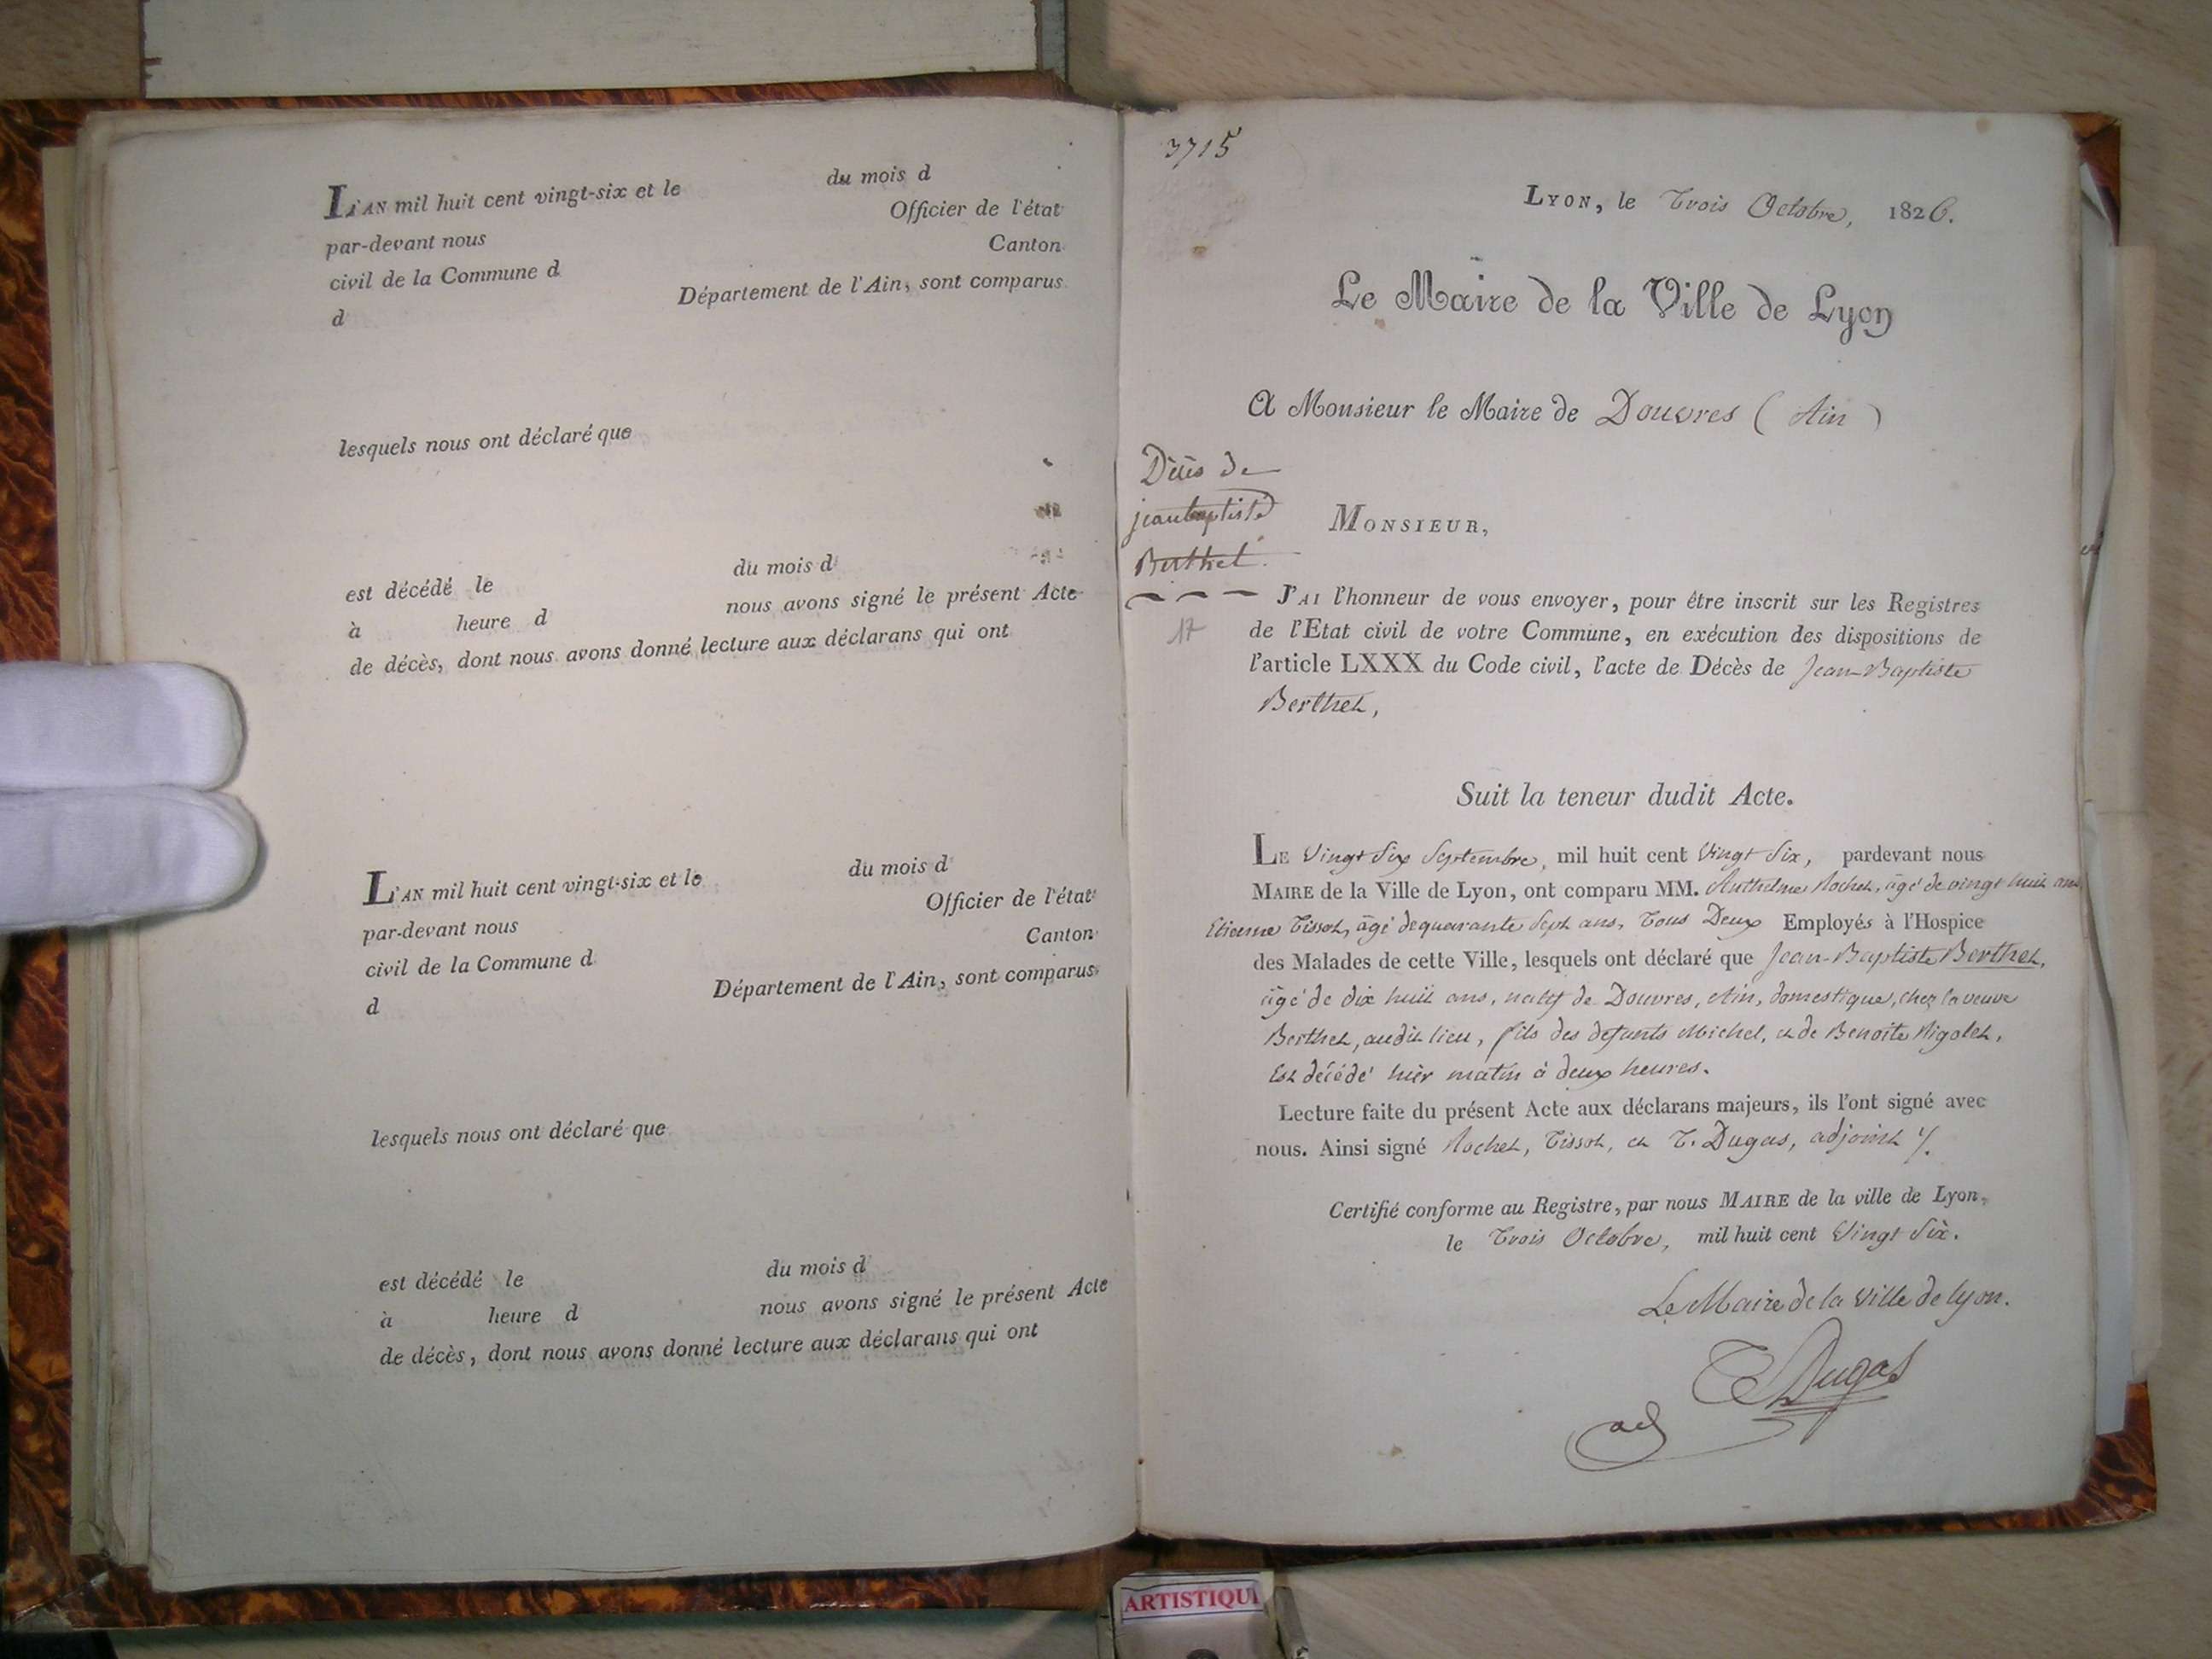 L'AN mil huit cent vingt-six et le du mois d
par-devant nous Officier de l'état
civil de la Commune d Canton
d Département de l'Ain, sont comparus
lesquels nous ont déclaré que
est décédé le du mois d
à heure d nous avons signé le présent Acte
de décès, dont nous avons donné lecture aux déclarans qui ont
L'AN mil huit cent vingt-six et le du mois d
par-devant nous Officier de l'état
civil de la Commune d Canton
d Département de l'Ain, sont comparus
lesquels nous ont déclaré que
est décédé le du mois d
à heure d nous avons signé le présent Acte
de décès, dont nous avons donné lecture aux déclarans qui ont
3715
LYON, le Trois Octobre, 1826.
Le Maire de la Ville de Lyon
A Monsieur le Maire de Douvres (Ain)
Décès de
jean baptiste
Berthet.
17
MONSIEUR,
J'AI l'honneur de vous envoyer, pour être inscrit sur les Registres
de l'Etat civil de votre Commune, en exécution des dispositions de
l'article LXXX du Code civil, l'acte de Décès de Jean-Baptiste
Berthet,
Suit la teneur dudit Acte.
LE Vingt Six Septembre, mil huit cent Vingt Six, pardevant nous
MAIRE de la Ville de Lyon, ont comparu MM. Anthelme Rochet, âgé de vingt huit ans
Etienne Tissot, âgé de quarante Sept ans, Tous Deux Employés à l'Hospice
des Malades de cette Ville, lesquels ont déclaré que Jean-Baptiste Berthet,
âgé de dix huit ans, natif de Douvres, Ain, domestique, chez la veuve
Berthet, audit lieu, fils des defunts Michel, et de Benoite Rigolet,
Est décédé hier matin à deux heures.
Lecture faite du présent Acte aux déclarans majeurs, ils l'ont signé avec
nous. Ainsi signé Rochet, Tissot, et T. Dugas, adjoint
Certifié conforme au Registre, par nous MAIRE de la ville de Lyon,
le Trois Octobre, mil huit cent Vingt Six.
Le Maire de la Ville de lyon.
T Dugas
adj
ARTISTIQU